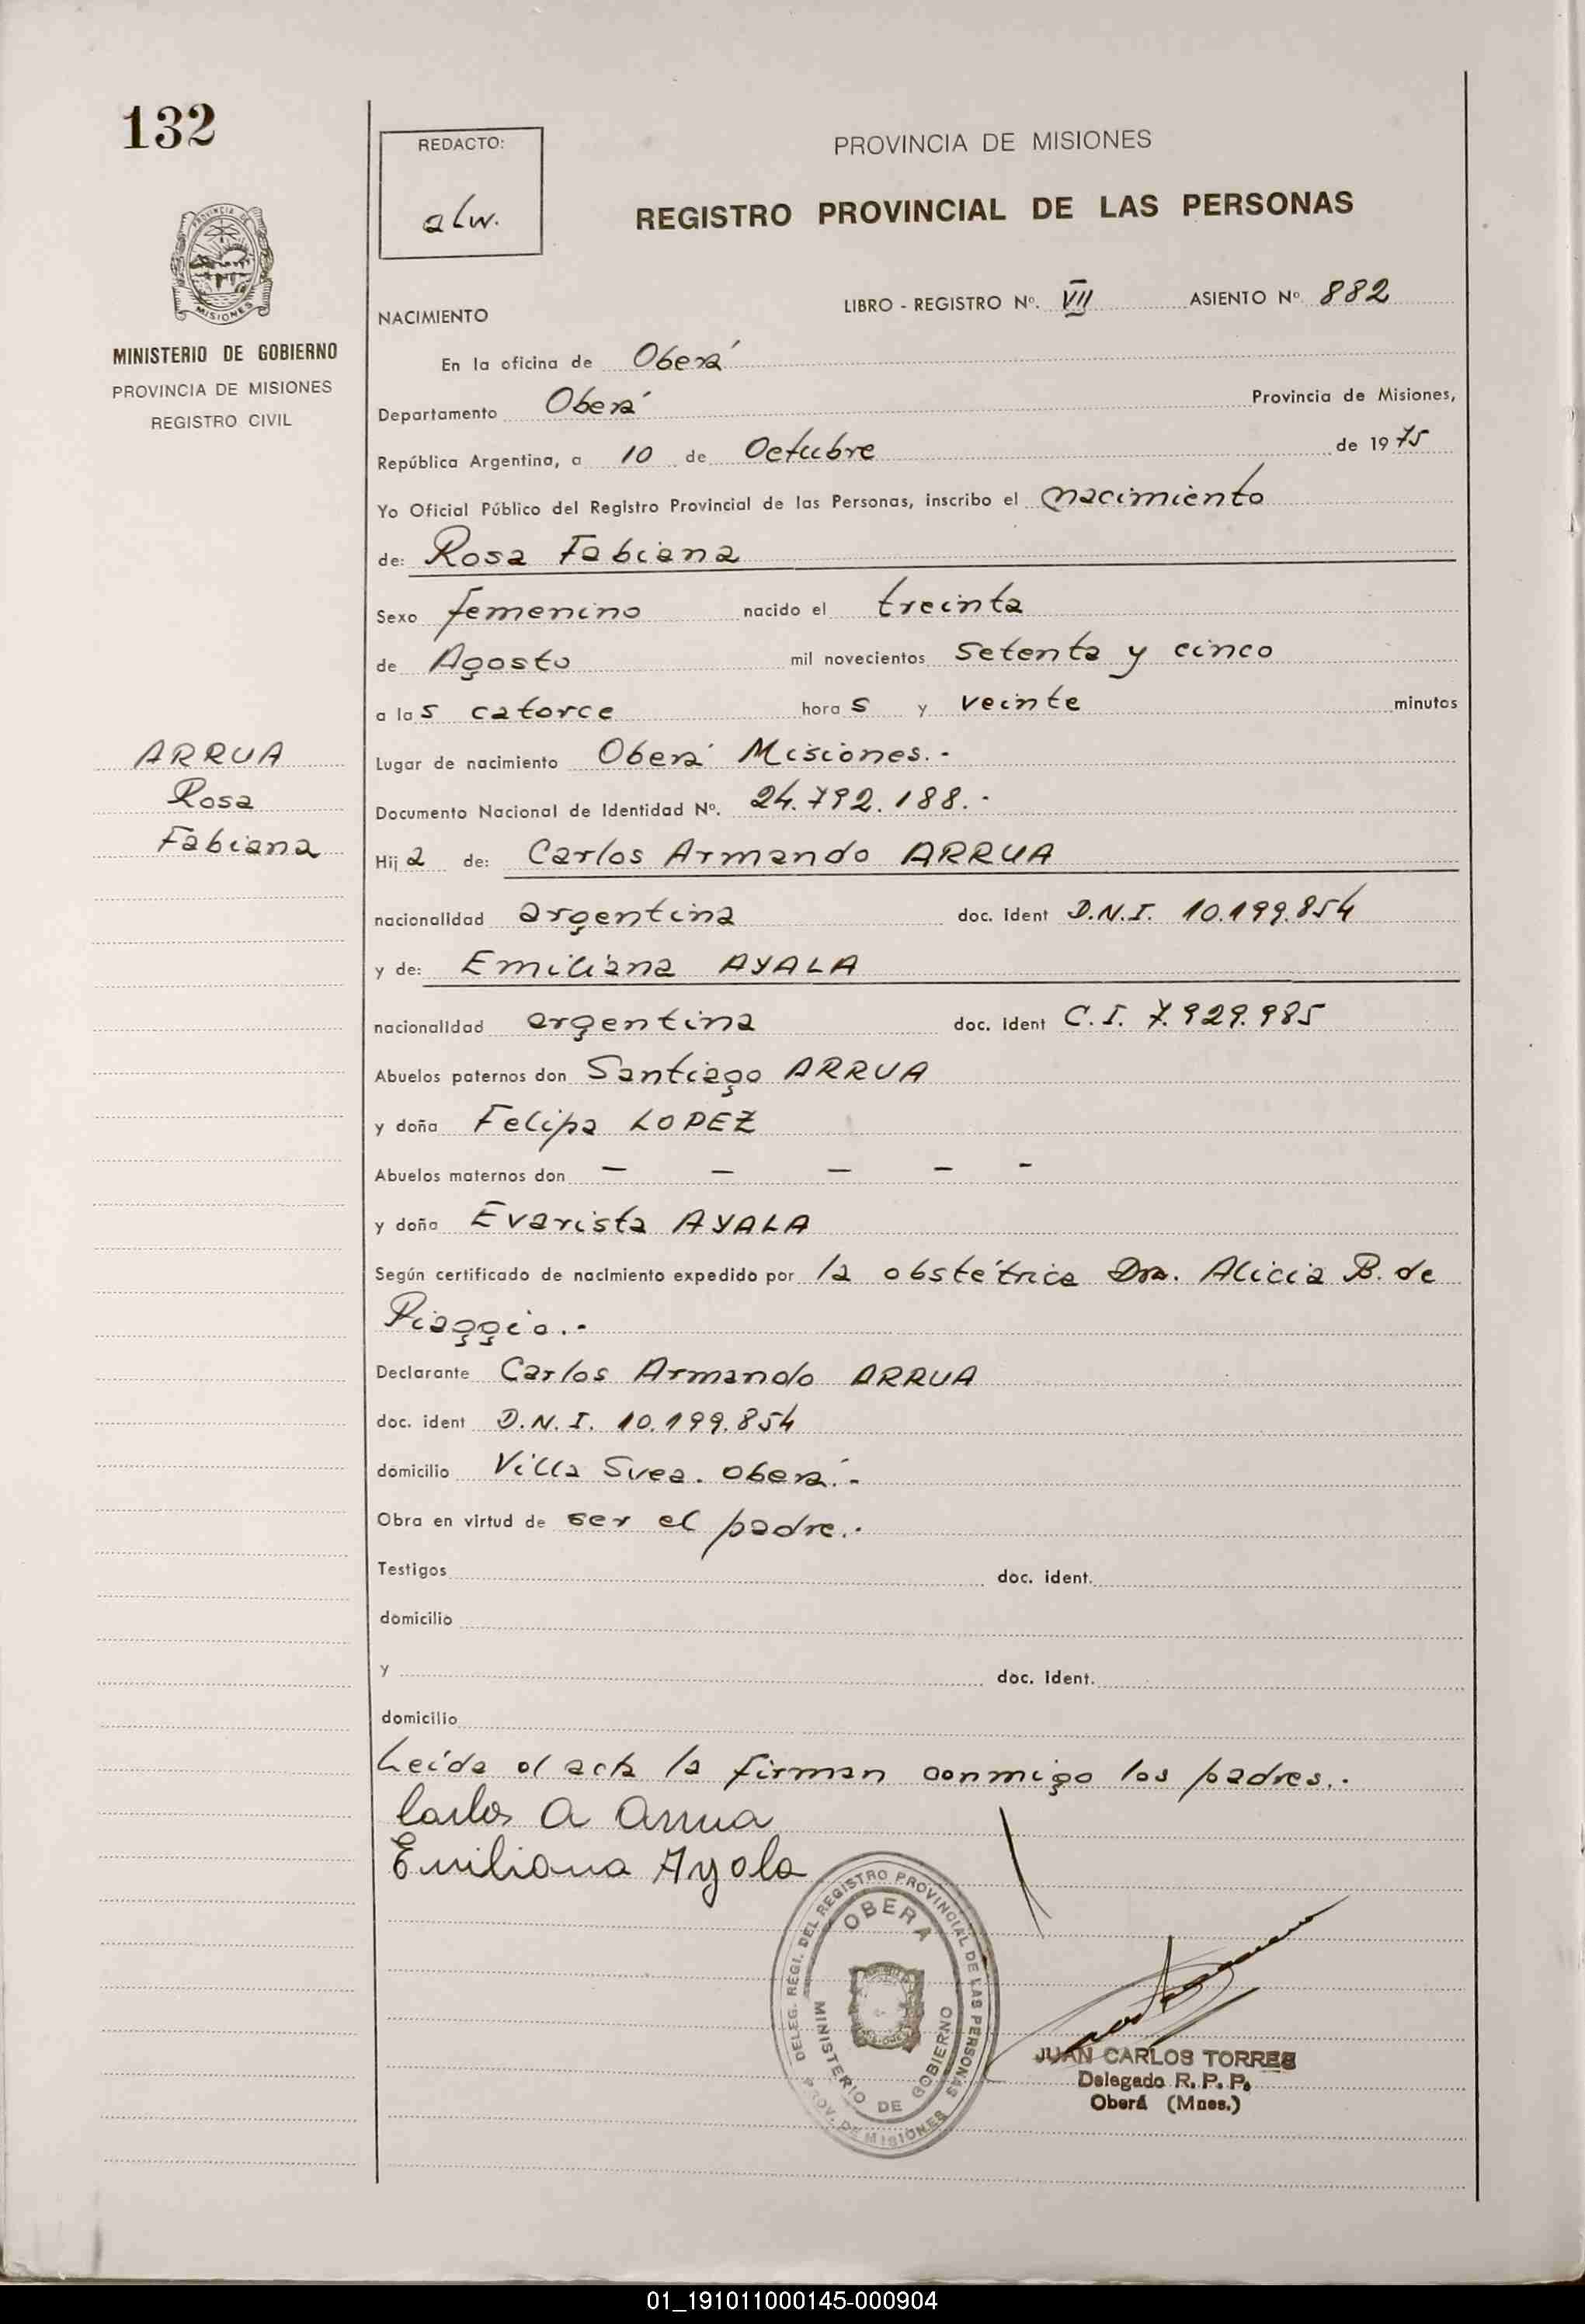 132
REDACTO:
alw.
PROVINCIA DE MISIONES
REGISTRO PROVINCIAL DE LAS PERSONAS
PROVINCIA DE
MISIONES
MINISTERIO DE GOBIERNO
PROVINCIA DE MISIONES
REGISTRO CIVIL
NACIMIENTO
LIBRO - REGISTRO Nº. VII ASIENTO Nº 882
En la oficina de Oberá
Departamento Oberá Provincia de Misiones,
República Argentina, a 10 de Octubre de 1975
Yo Oficial Público del Registro Provincial de las Personas, inscribo el nacimiento
de: Rosa Fabiana
Sexo femenino nacido el treinta
de Agosto mil novecientos setenta y cinco
a las catorce horas y veinte minutos
ARRUA
Rosa
Fabiana
Lugar de nacimiento Oberá Misiones.-
Documento Nacional de Identidad Nº. 24.792.188.-
Hija de: Carlos Armando ARRUA
nacionalidad argentina doc. ident D.N.I. 10.199.854
y de: Emiliana AYALA
nacionalidad argentina doc. ident C.I. 7.929.985
Abuelos paternos don Santiago ARRUA
y doña Felipa LOPEZ
Abuelos maternos don — — — — -
y doña Evarista AYALA
Según certificado de nacimiento expedido por la obstétrica Dra. Alicia B. de
Piaggio.-
Declarante Carlos Armando ARRUA
doc. ident D.N.I. 10.199.854
domicilio Villa Svea. Oberá.-
Obra en virtud de ser el padre.-
Testigos doc. ident.
domicilio
y doc. ident.
domicilio
Leída el acta la firman conmigo los padres.-
Carlos A Arrua
Emiliana Ayala
DELEG. REGI. DEL REGISTRO PROVINCIAL DE LAS PERSONAS
OBERA
MINISTERIO DE GOBIERNO
PROV. DE MISIONES
JUAN CARLOS TORRES
Delegado R. P. P.
Oberá (Mnes.)
01_191011000145-000904